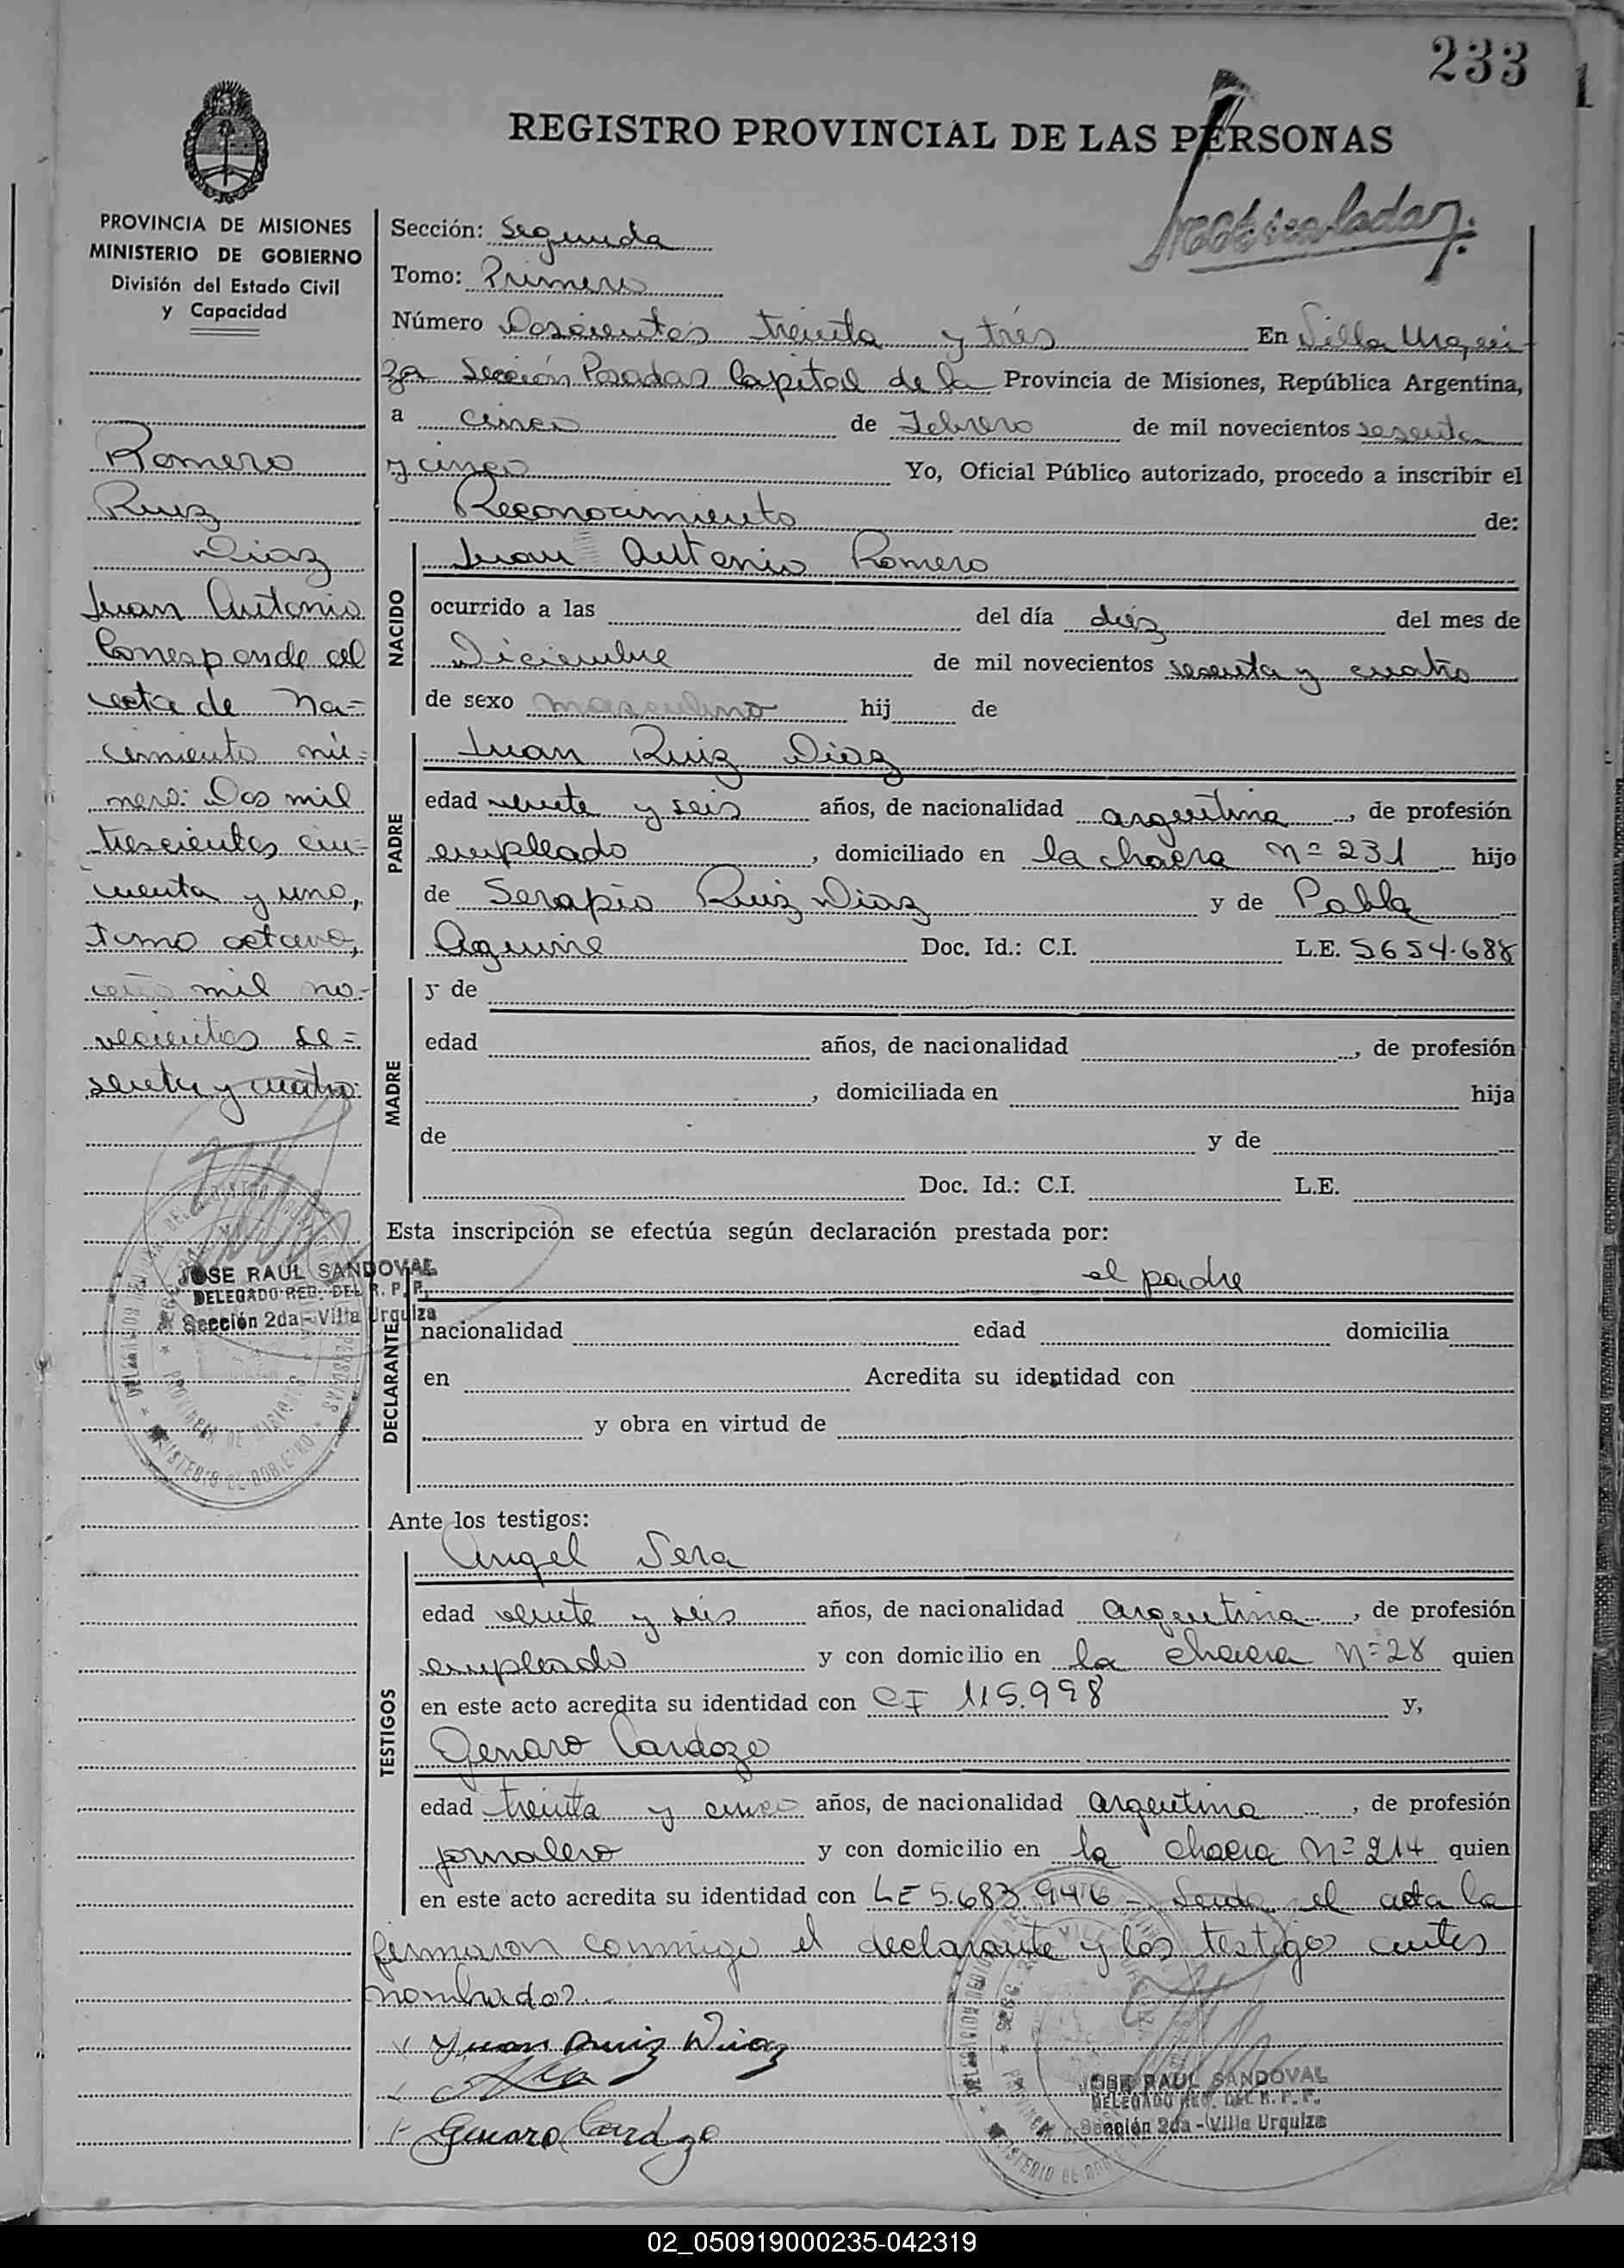 233
1
REGISTRO PROVINCIAL DE LAS PERSONAS
PROVINCIA DE MISIONES
MINISTERIO DE GOBIERNO
División del Estado Civil
y Capacidad
Romero
Ruiz
Diaz
Juan Antonio
Corresponde al
acta de na=
cimiento nú=
mero: Dos mil
trescientos cin=
cuenta y uno,
tomo octavo,
año mil no-
vecientos se=
senta y cuatro.
JOSE RAUL SANDOVAL
DELEGADO REG. DEL R. P. P.
Sección 2da - Villa Urquiza
Sección: Segunda
Tomo: Primero
Número Doscientos treinta y trés En Villa Urqui-
za Sección Posadas Capital de la Provincia de Misiones, República Argentina,
a cinco de Febrero de mil novecientos sesenta
y cinco Yo, Oficial Público autorizado, procedo a inscribir el
Reconocimiento de:
NACIDO
Juan Antonio Romero
ocurrido a las del día diéz del mes de
Diciembre de mil novecientos sesenta y cuatro
de sexo masculino hij de
PADRE
Juan Ruiz Diaz
edad veinte y seis años, de nacionalidad argentina, de profesión
empleado, domiciliado en la chacra nº 231 hijo
de Serapio Ruiz Diaz y de Pabla
Aguirre Doc. Id.: C.I. L.E. 5654.688
MADRE
y de
edad años, de nacionalidad , de profesión
, domiciliada en hija
de y de
Doc. Id.: C.I. L.E.
Esta inscripción se efectúa según declaración prestada por:
DECLARANTE
el padre
nacionalidad edad domicilia
en Acredita su identidad con
y obra en virtud de
Ante los testigos:
TESTIGOS
Angel Sera
edad veinte y seis años, de nacionalidad argentina, de profesión
empleado y con domicilio en la chacra nº 28 quien
en este acto acredita su identidad con CI 115.998 y,
Genaro Cardozo
edad treinta y cinco años, de nacionalidad argentina, de profesión
jornalero y con domicilio en la chacra nº 214 quien
en este acto acredita su identidad con LE 5.683.946 - Leida el acta la
firmaron conmigo el declarante y los testigos antes
nombrados.
Juan Ruiz Diaz
Genaro Cardozo
JOSE RAUL SANDOVAL
DELEGADO REG. DEL R. P. P.
Sección 2da - Villa Urquiza
02_050919000235-042319